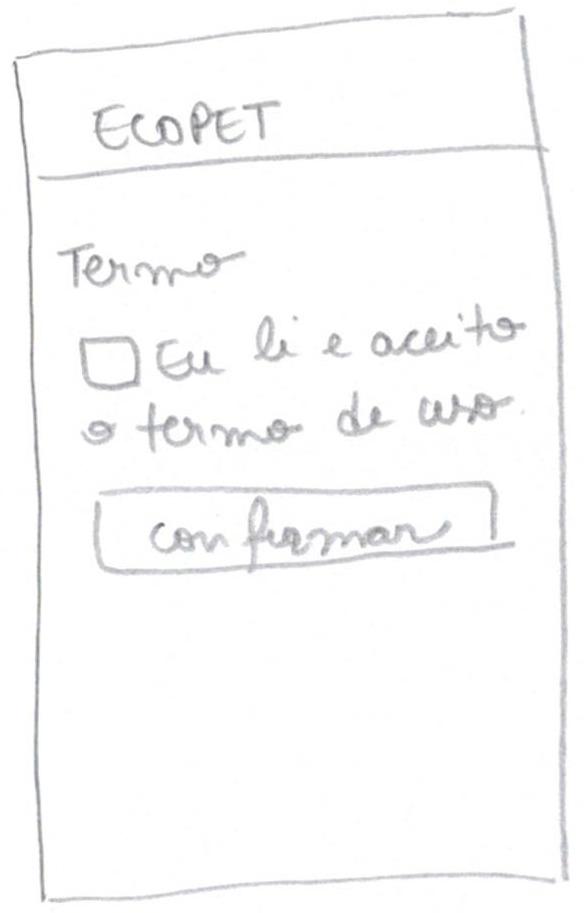 ECOPET
Termo
Eu li e aceito
o termo de uso.
confirmar